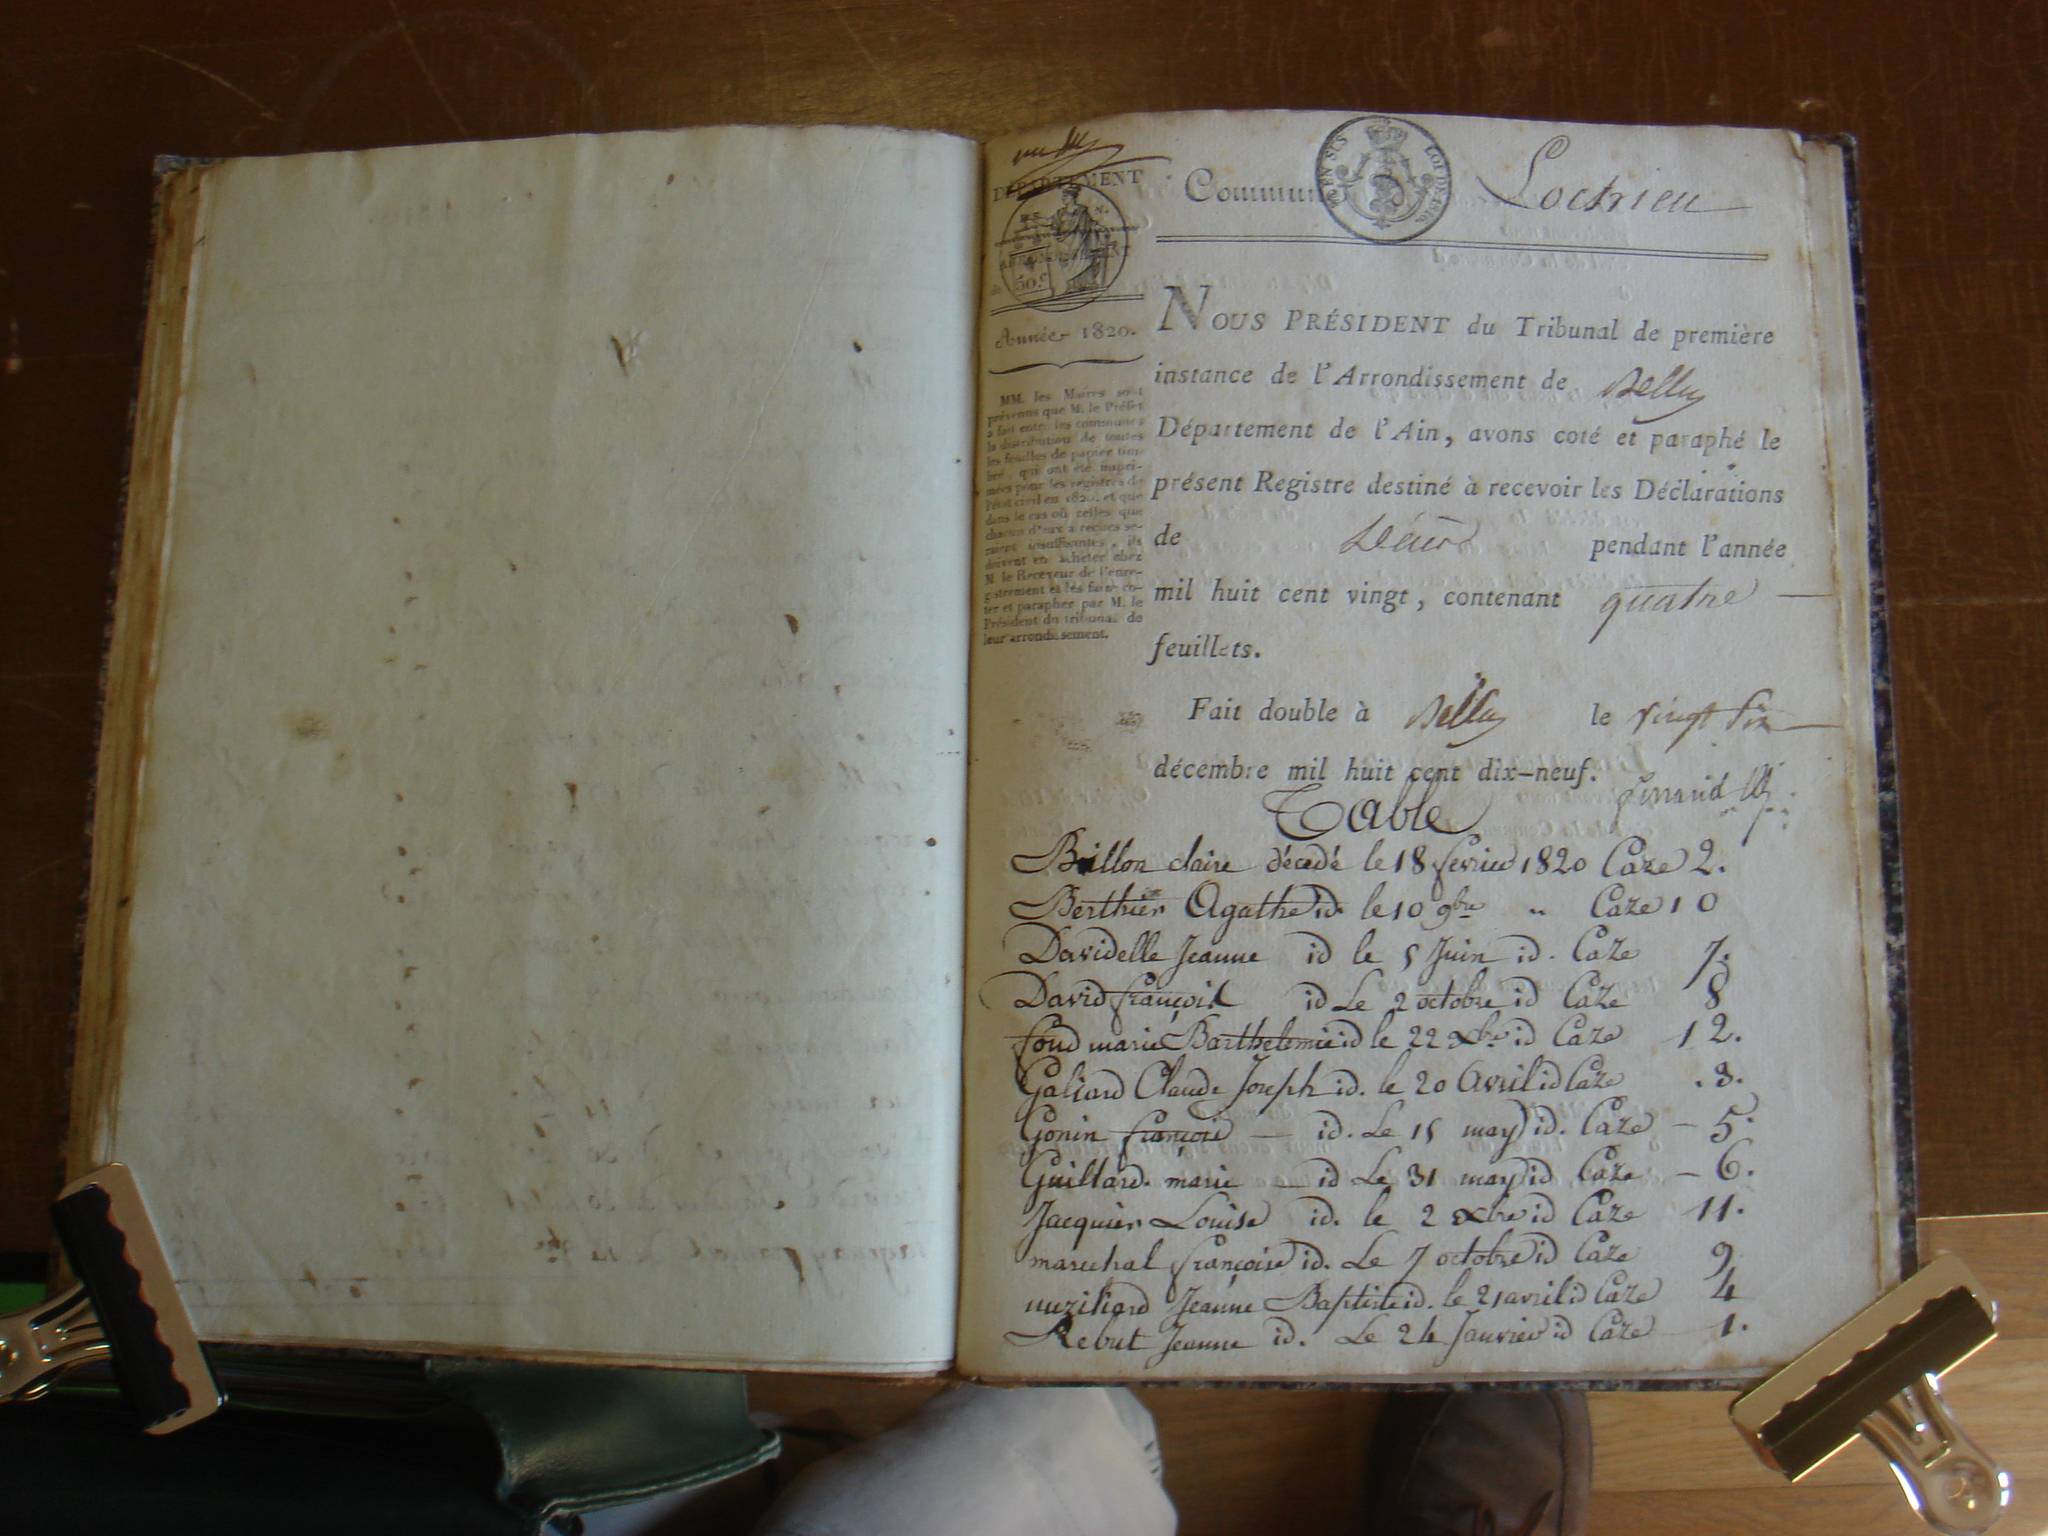 DÉPARTEMENT
50 c
Année 1820.
MM. les Maires sont
prévenus que M. le Préfet
a fait entre les communes
la distribution de toutes
les feuilles de papier tim-
bré, qui ont été impri-
mées pour les registres de
l'état civil en 1820, et que
dans le cas où celles que
chacun d'eux a reçues se-
raient insuffisantes, ils
doivent en acheter chez
M. le Receveur de l'enre-
gistrement et les faire co-
ter et parapher par M. le
Président du tribunal de
leur arrondissement.
Commun Lochieu
LOI DE 1816
NOUS PRÉSIDENT du Tribunal de première
instance de l'Arrondissement de Belley
Département de l'Ain, avons coté et paraphé le
présent Registre destiné à recevoir les Déclarations
de Décès pendant l'année
mil huit cent vingt, contenant quatre
feuillets.
Fait double à Belley le vingt six
décembre mil huit cent dix-neuf.
Table
Billon claire décedé le 18 fevrier 1820 Caze 2.
Berthier Agathe id. le 10 9bre " Caze 10
Davidelle Jeanne id le 5 Juin id. Caze 7.
David françois id Le 2 octobre id Caze 8
fond marie Barthelemie id le 22 xbre id Caze 12.
Galiard Claude Joseph id. le 20 Avril id Caze .3.
Gonin françois — id. Le 15 may id. Caze — 5.
Guillard. marie — id Le 31 may id Caze — 6.
Jacquier Louise id. le 2 xbre id Caze 11.
marechal françoise id. Le 7 octobre id Caze 9
nuziliard Jeanne Baptiste id. le 21 avril id Caze 4
Rebut Jeanne id. Le 24 Janvier id Caze 1.